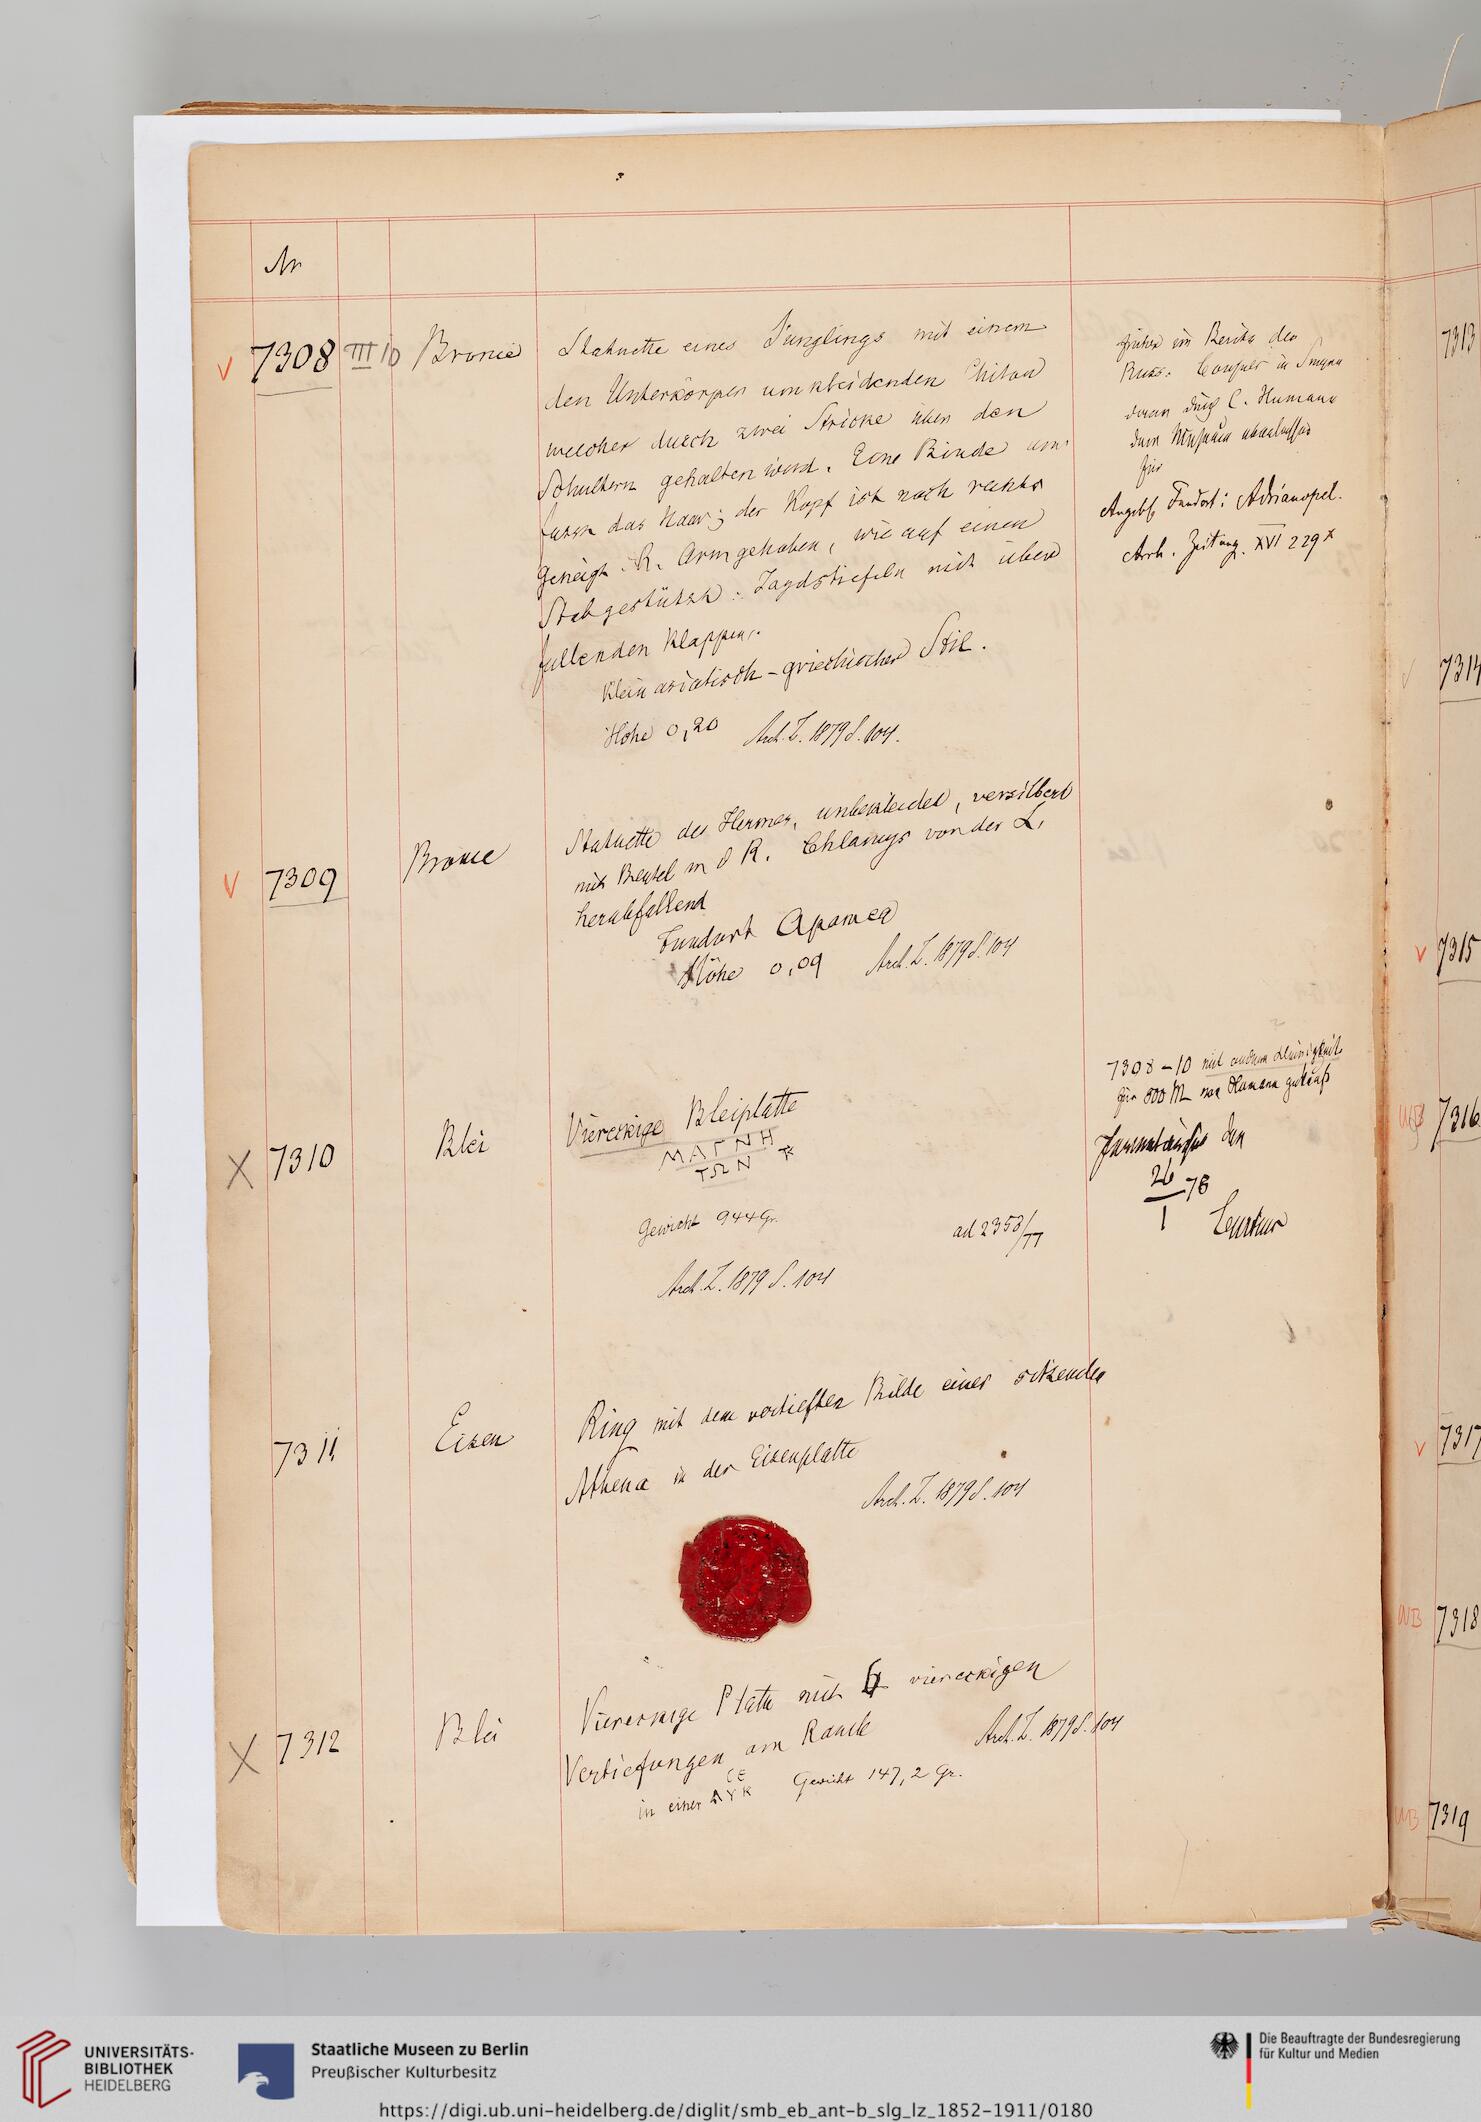 Nr
7308 III 10 Bronce Statuette eines Jünglings mit einem
den Unterkörper umkleidenden Chiton
welcher durch zwei Stricke über den
Schultern gehalten wird. Eine Binde um
fasst das Haar; der Kopf ist nach rechts
geneigt. R. Arm gehoben, wie auf einen
Stab gestützt. Jagdstiefeln mit über
fallenden Klappen.
Klein asiatisch-griechischer Stil.
Höhe 0,20 Arch. Z. 1879 S. 104.
früher im Besitz des
Russ. Consuls in Smyrna
dann durch C. Humann
dem Museum
für
Angebl. Fundort: Adrianopel.
Arch. Zeitung. XVI 229 x
7309 Bronce Statuette des Hermes, unbekleidet, versilbert
mit Beutel in d R. Chlamys von der L.
herabfallend
Fundort Apamea
Höhe 0,09 Arch. Z. 1879 S. 104
7308-10 mit andern Kleinigkeit
für 800 M von Humann gekauft
Inventarisirt den
26/1 78
Curtius
7310 Blei Viereckige Bleiplatte
ΜΑΓΝΗ
ΤΩΝ
Gewicht 944 Gr.
ad 2353/77
Arch. Z. 1879 S. 104
7311 Eisen Ring mit dem vertieften Bilde einer sitzenden
Athena in der Eisenplatte
Arch. Z. 1879 S. 104
7312 Blei Viereckige Platte mit 4 viereckigen
Vertiefungen am Rande Arch. Z. 1879 S. 104
in einer CE
ΛΥΚ Gewicht 147,2 Gr.
7313
7314
7315
WB 7316
7317
WB 7318
WB 7319
UNIVERSITÄTS-
BIBLIOTHEK
HEIDELBERG
Staatliche Museen zu Berlin
Preußischer Kulturbesitz
Die Beauftragte der Bundesregierung
für Kultur und Medien
https://digi.ub.uni-heidelberg.de/diglit/smb_eb_ant-b_slg_lz_1852-1911/0180